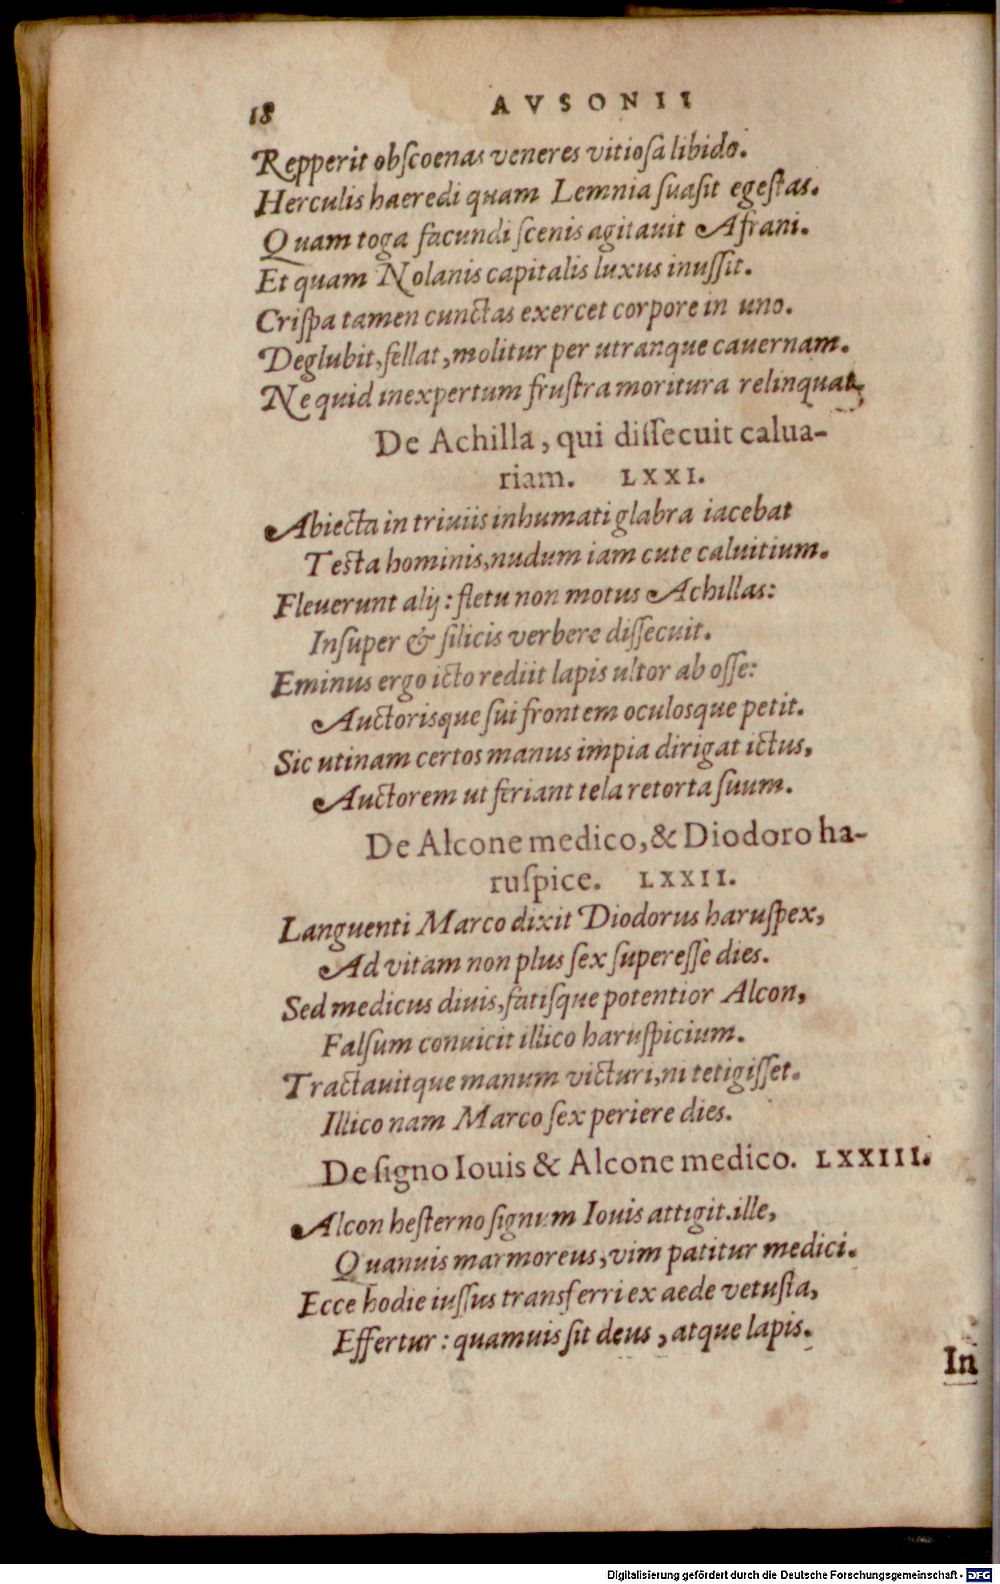 18 AVSONII
Repperit obſcoenas veneres vitioſa libido.
Herculis haeredi quam Lemnia ſuaſit egeſtas.
Quam toga facundi ſcenis agitauit Afrani.
Et quam Nolanis capitalis luxus inuſſit.
Criſpa tamen cunctas exercet corpore in uno.
Deglubit, fellat, molitur per utranque cauernam.
Ne quid inexpertum fruſtra moritura relinquat,
De Achilla, qui diſſecuit calua-
riam. LXXI.
Abiecta in triuiis inhumati glabra iacebat
Testa hominis, nudum iam cute caluitium.
Fleuerunt alij: fletu non motus Achillas:
Inſuper & ſilicis verbere diſſecuit.
Eminus ergo icto rediit lapis ultor ab oſſe:
Auctorisque ſui frontem oculosque petit.
Sic utinam certos manus impia dirigat ictus,
Auctorem ut feriant tela retorta ſuum.
De Alcone medico, & Diodoro ha-
ruſpice. LXXII.
Languenti Marco dixit Diodorus haruſpex,
Ad vitam non plus ſex ſupereſſe dies.
Sed medicus diuis, fatiſque potentior Alcon,
Falſum conuicit illico haruſpicium.
Tractauitque manum victuri, ni tetigiſſet.
Illico nam Marco ſex periere dies.
De ſigno Iouis & Alcone medico. LXXIII.
Alcon heſterno ſignum Iouis attigit. ille,
Quanuis marmoreus, vim patitur medici.
Ecce hodie iuſſus transferri ex aede vetuſta,
Effertur: quamuis ſit deus, atque lapis.
In
Digitalisierung gefördert durch die Deutsche Forschungsgemeinschaft - DFG